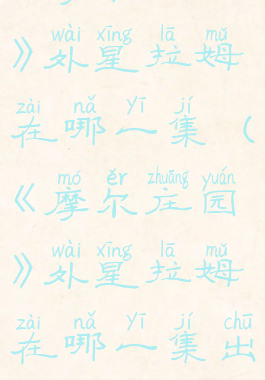 wài xīng lā mǔ
》外星拉姆
zài nǎ yī jí
在哪一集（
mó ěr zhuāng yuán
《摩尔庄园
wài xīng lā mǔ
》外星拉姆
zài nǎ yī jí chū
在哪一集出